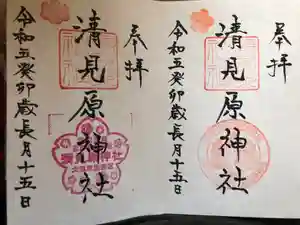 奉拝
清見原神社
令和五癸卯歳長月十五日
奉拝
清見原神社
令和五癸卯歳長月十五日